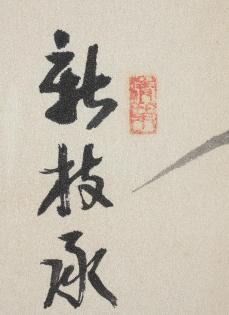 新枝承